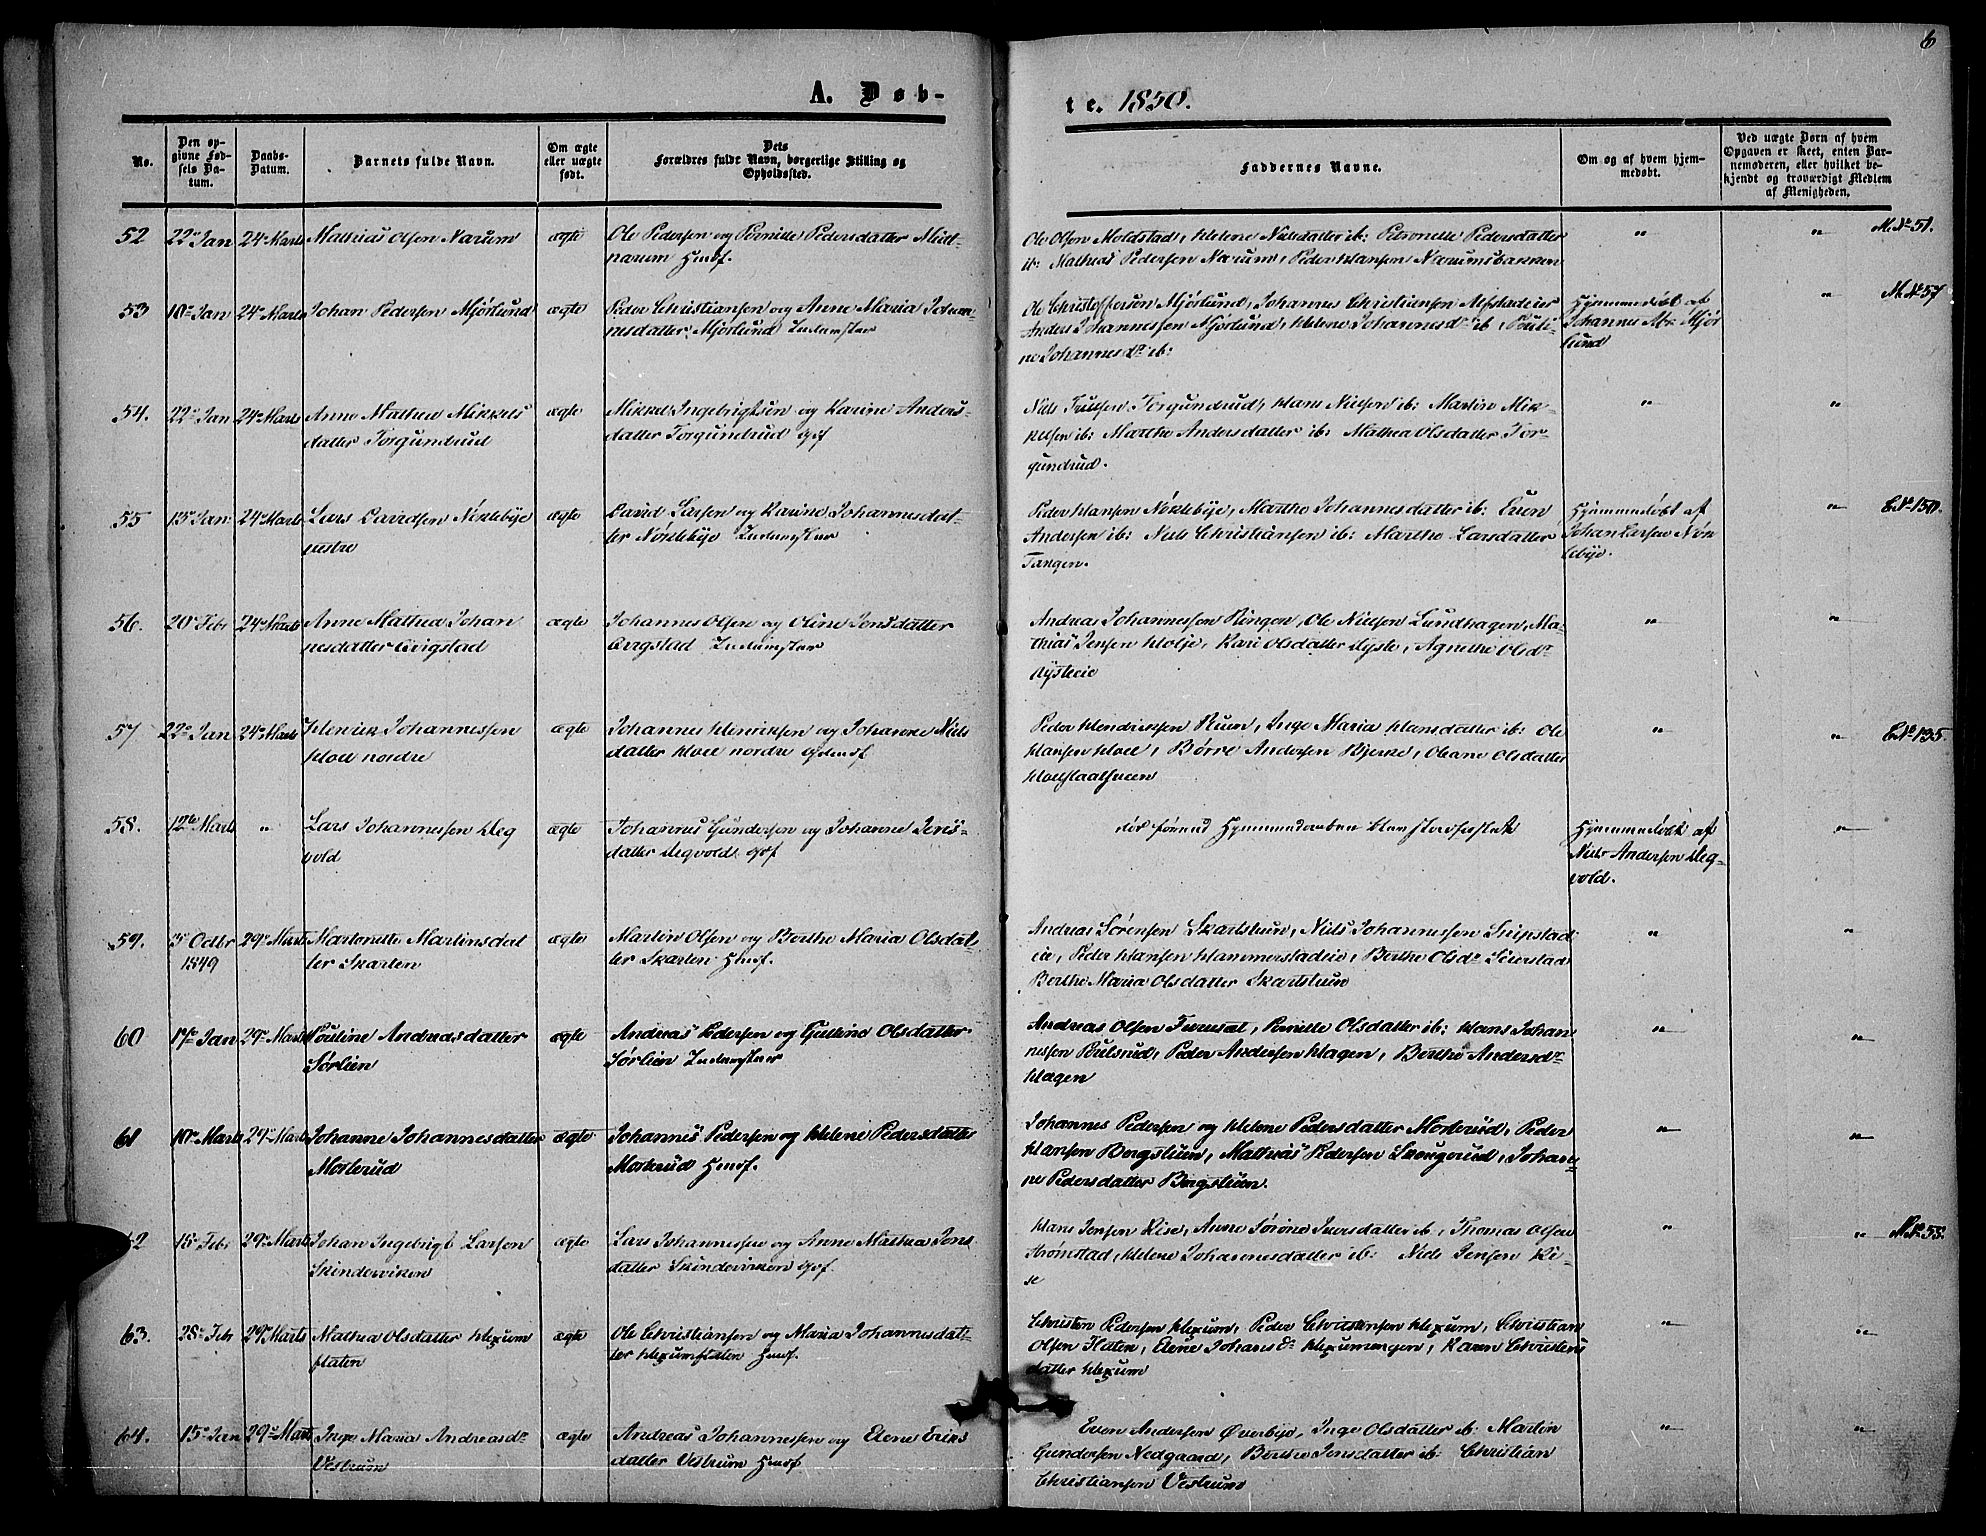 6
A. Døb-
te. 1850.
No.
Den op-
givne Fød-
sels Da-
tum.
Daabs-
Datum.
Barnets fulde Navn.
Om ægte
eller uægte
født.
Dets
Forældres fulde Navn, borgerlige Stilling og
Opholdssted.
Faddernes Navne.
Om og af hvem hjem-
medøbt.
Ved uægte Børn af hvem
Opgaven er skeet, enten Bar-
nemoderen, eller hvilket be-
kjendt og troværdigt Medlem
af Menigheden.
52 22 Jan 24 Marts Mathias Olsen Narum ægte Ole Pedersen og Pernille Pedersdatter
narum Hmd. Ole Olsen Moldstad, Helene Nielsdatter ib: Petronelle Pedersdatter " " M.No 51.
ib: Mathias Pedersen Narum, Peder Hansen Narumsbakken
53 10 Jan 24 Marts Johan Pedersen Mjørlund ægte Peder Christiansen og Anne Maria Johan-
nesdatter Mjørlund Inderster
Ole Christoffersen Mjørlund, Johannes Christiansen " M.No 57.
Anders Johannessen Mjørlund, Helene Johannesdr ib, Pauli-
ne Johannesdr ib:
Hjemmedøbt af
Johannes Mjør
lund
54. 22 Jan 24 Marts Anne Mathea Mikkels
datter Torgundrud ægte Mikkel Ingebrigtsen og Karine Anders-
datter Torgundrud
Niels Torgundrud, Hans Nielsen ib: Martin Mik-
kelsen ib: Marthe Andersdatter ib: Mathea Olsdatter Tor-
gundrud. " "
55 13 Jan 24 Marts Lars Davidsen Nøklebye
vestre ægte David Larsen og Karine Johannesdat-
ter Nøklebye Inderster
Peder Hansen Nøklebye, Marthe Johannesdatter ib: Even
Andersen ib: Niels Christiansen ib: Marthe Larsdatter
Tangen.
Hjemmedøbt af
Johan Larsen Nøk
lebye. " E.No 150.
56. 20 Febr 24 Marts Anne Mathea Johan
nesdatter Evigstad ægte Johannes Olsen og Oline Jensdatter
Evigstad Inderster
Andreas Johannessen Ringen, Ole Nielsen Lundhagen, Ma-
thias Jensen, Kari Olsdatter, Agnethe Olsdr " "
57 22 Jan 24 Marts Henrik Johannessen
Hoel nordre ægte Johannes Henriksen og Johanne Niels
datter Hoel nordre
Peder Hendriksen Ruen, Inge Maria Hansdatter ib: Ole
Hansen Hoel, Børre Andersen Bjerke, Oleane Olsdatter
" " E.No 135.
58. 12 Marts " Lars Johannessen Heg
vold ægte Johannes Gundersen og Johanne Jens-
datter Hegvold
død førend Hjemmedaaben blev stadfæstet
Hjemmedøbt af
Niels Andersen Heg-
vold. "
59. 5 Octbr
1849 29 Marts Martinette Martinsdat
ter Skarten ægte Martin Olsen og Berthe Maria Olsdat,
ter Skarten Hmd.
Andreas Sørensen Skartstuen, Niels Johannessen Snipstad
eie, Peder Hansen Hammerstadeie, Berthe Olsdr Seierstad
Berthe Maria Olsdatter Skartstuen " "
60 17 Jan 29 Marts Pauline Andreasdatter
Sørlien ægte Andreas Pedersen og Olsdatter
Sørlien Inderster
Andreas Olsen Furuset, Pernille Olsdatter ib: Hans Johan
nessen Bulsrud, Peder Andersen Hagen, Berthe Andersdr
Hagen " "
61 10 Marts 29 Marts Johanne Johannesdatter
Mosterud ægte Johannes Pedersen og Helene Pedersdatter
Mosterud Hmd.
Johannes Pedersen og Helene Pedersdatter Mosterud, Peder
Hansen Bergstuen, Mathias Pedersen Skougerud, Johan-
ne Pedersdatter Bergstuen. " "
62 15 Febr 29 Marts Johan Ingebrigt Larsen
Skindesviken ægte Lars Johannessen og Anne Mathea Jens
datter Skindesviken
Hans Jensen Rise, Anne Sørine Iversdatter ib, Thomas Olsen
Strømstad, Helene Johannesdatter ib: Niels Jensen Ri-
se " " M.No 55.
63. 28 Feb 29 Marts Mathea Olsdatter Hexum
flaten ægte Ole Christiansen og Maria Johannesdat-
ter Hexumflaten Hmd.
Christen Pedersen Hexum, Peder Christensen Hexum, Christian
Olsen Flaten, Elene Johansdr Hexumengen, Karen Christens
datter Hexum " "
64. 15 Jan 29 Marts Inge Maria Andreasdr
Vestrum ægte Andreas Johannessen og Elene Eriks
datter Vestrum Hmd
Even Andersen Øverbye, Inge Olsdatter ib: Martin
Gundersen Nedgaard, Berthe Jensdatter ib: Christian
Christiansen Vestrum " "